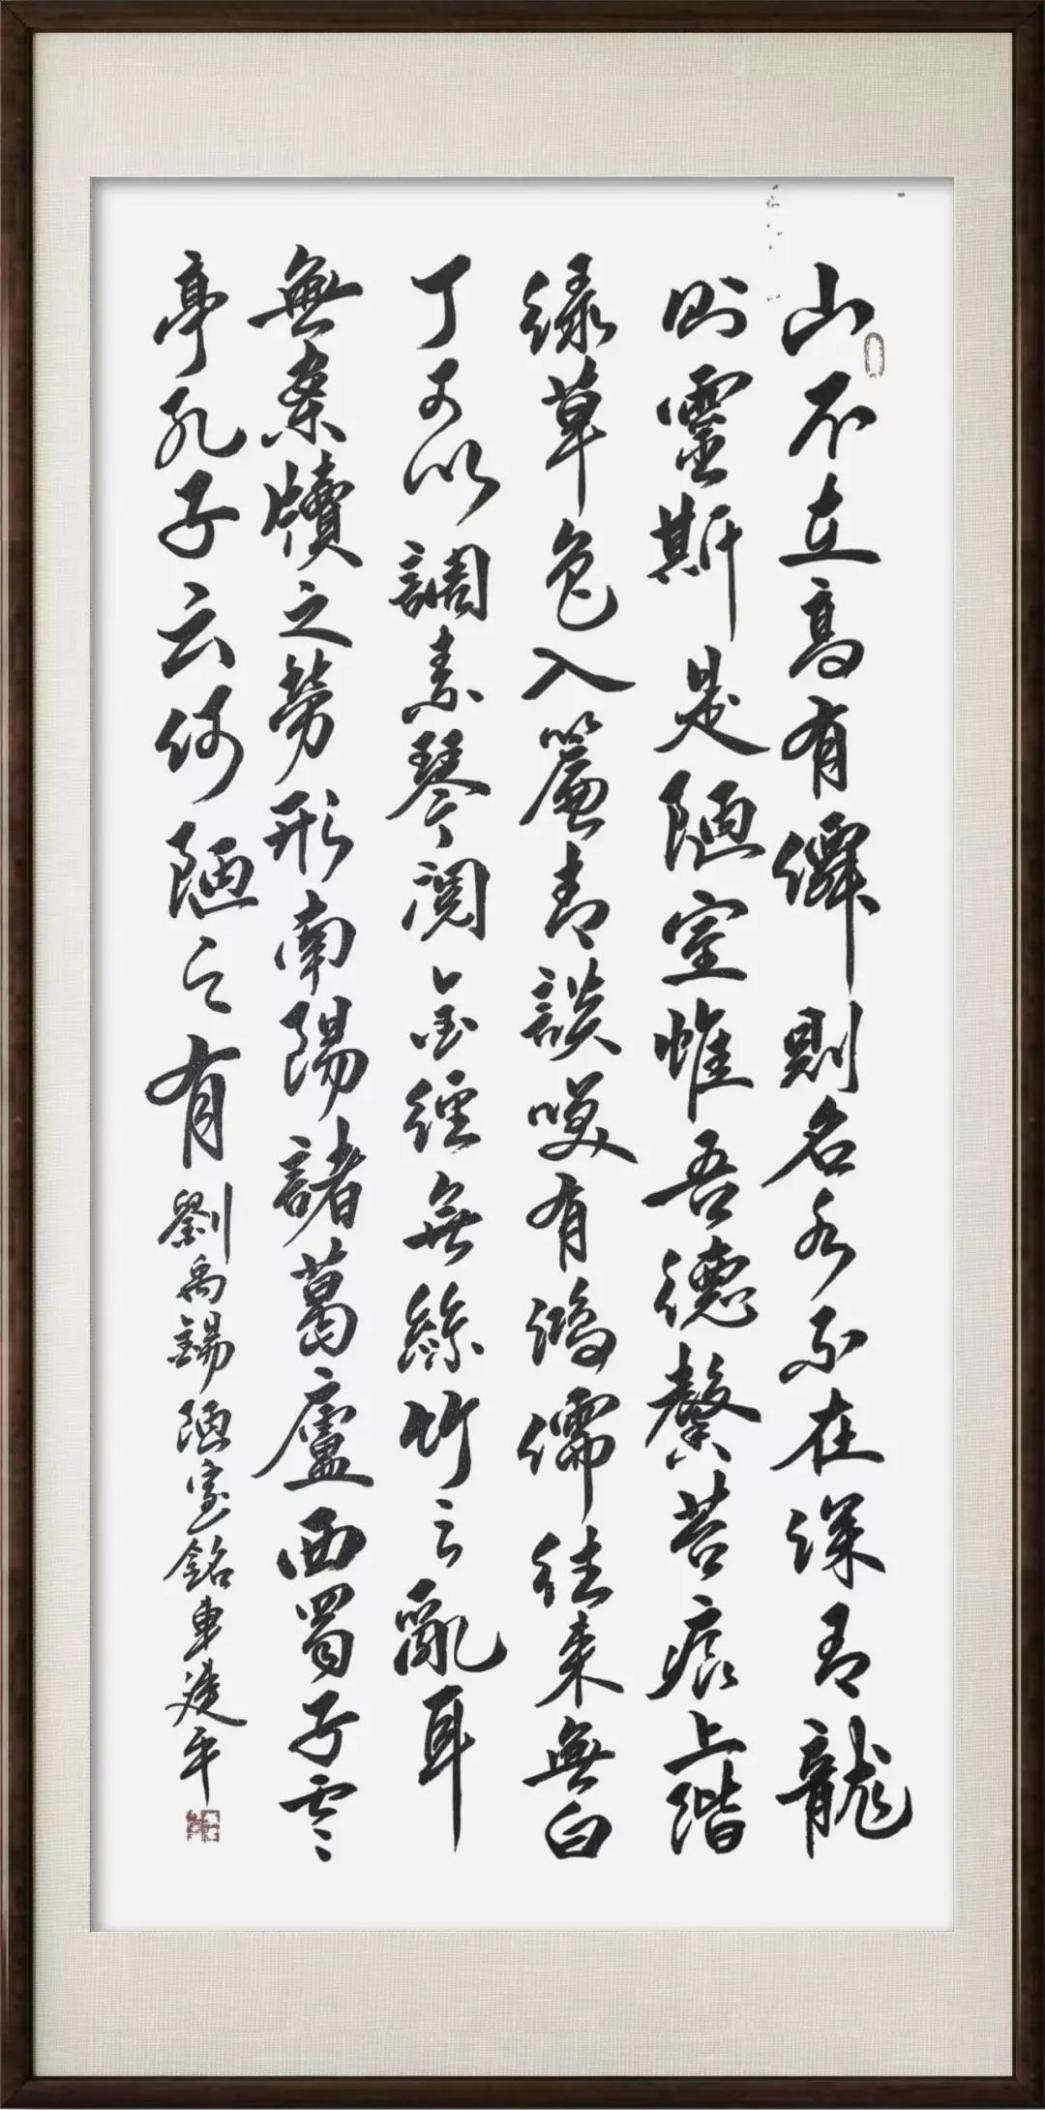 山不在高有僊則名水不在深有龍
則靈斯是陋室惟吾德馨苔痕上階
綠草色入簾青談咲有鴻儒往來無白
丁可以調素琴閱金經無絲竹之亂耳
無案牘之勞形南陽諸葛廬西蜀子雲
亭孔子云何陋之有劉禹錫陋室銘車建平